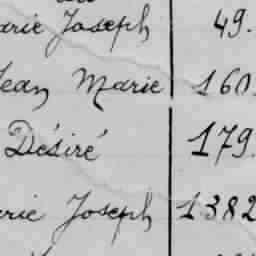 arie Joseph 49.
Jean Marie 160
Désiré 179.
arie Joseph 1382